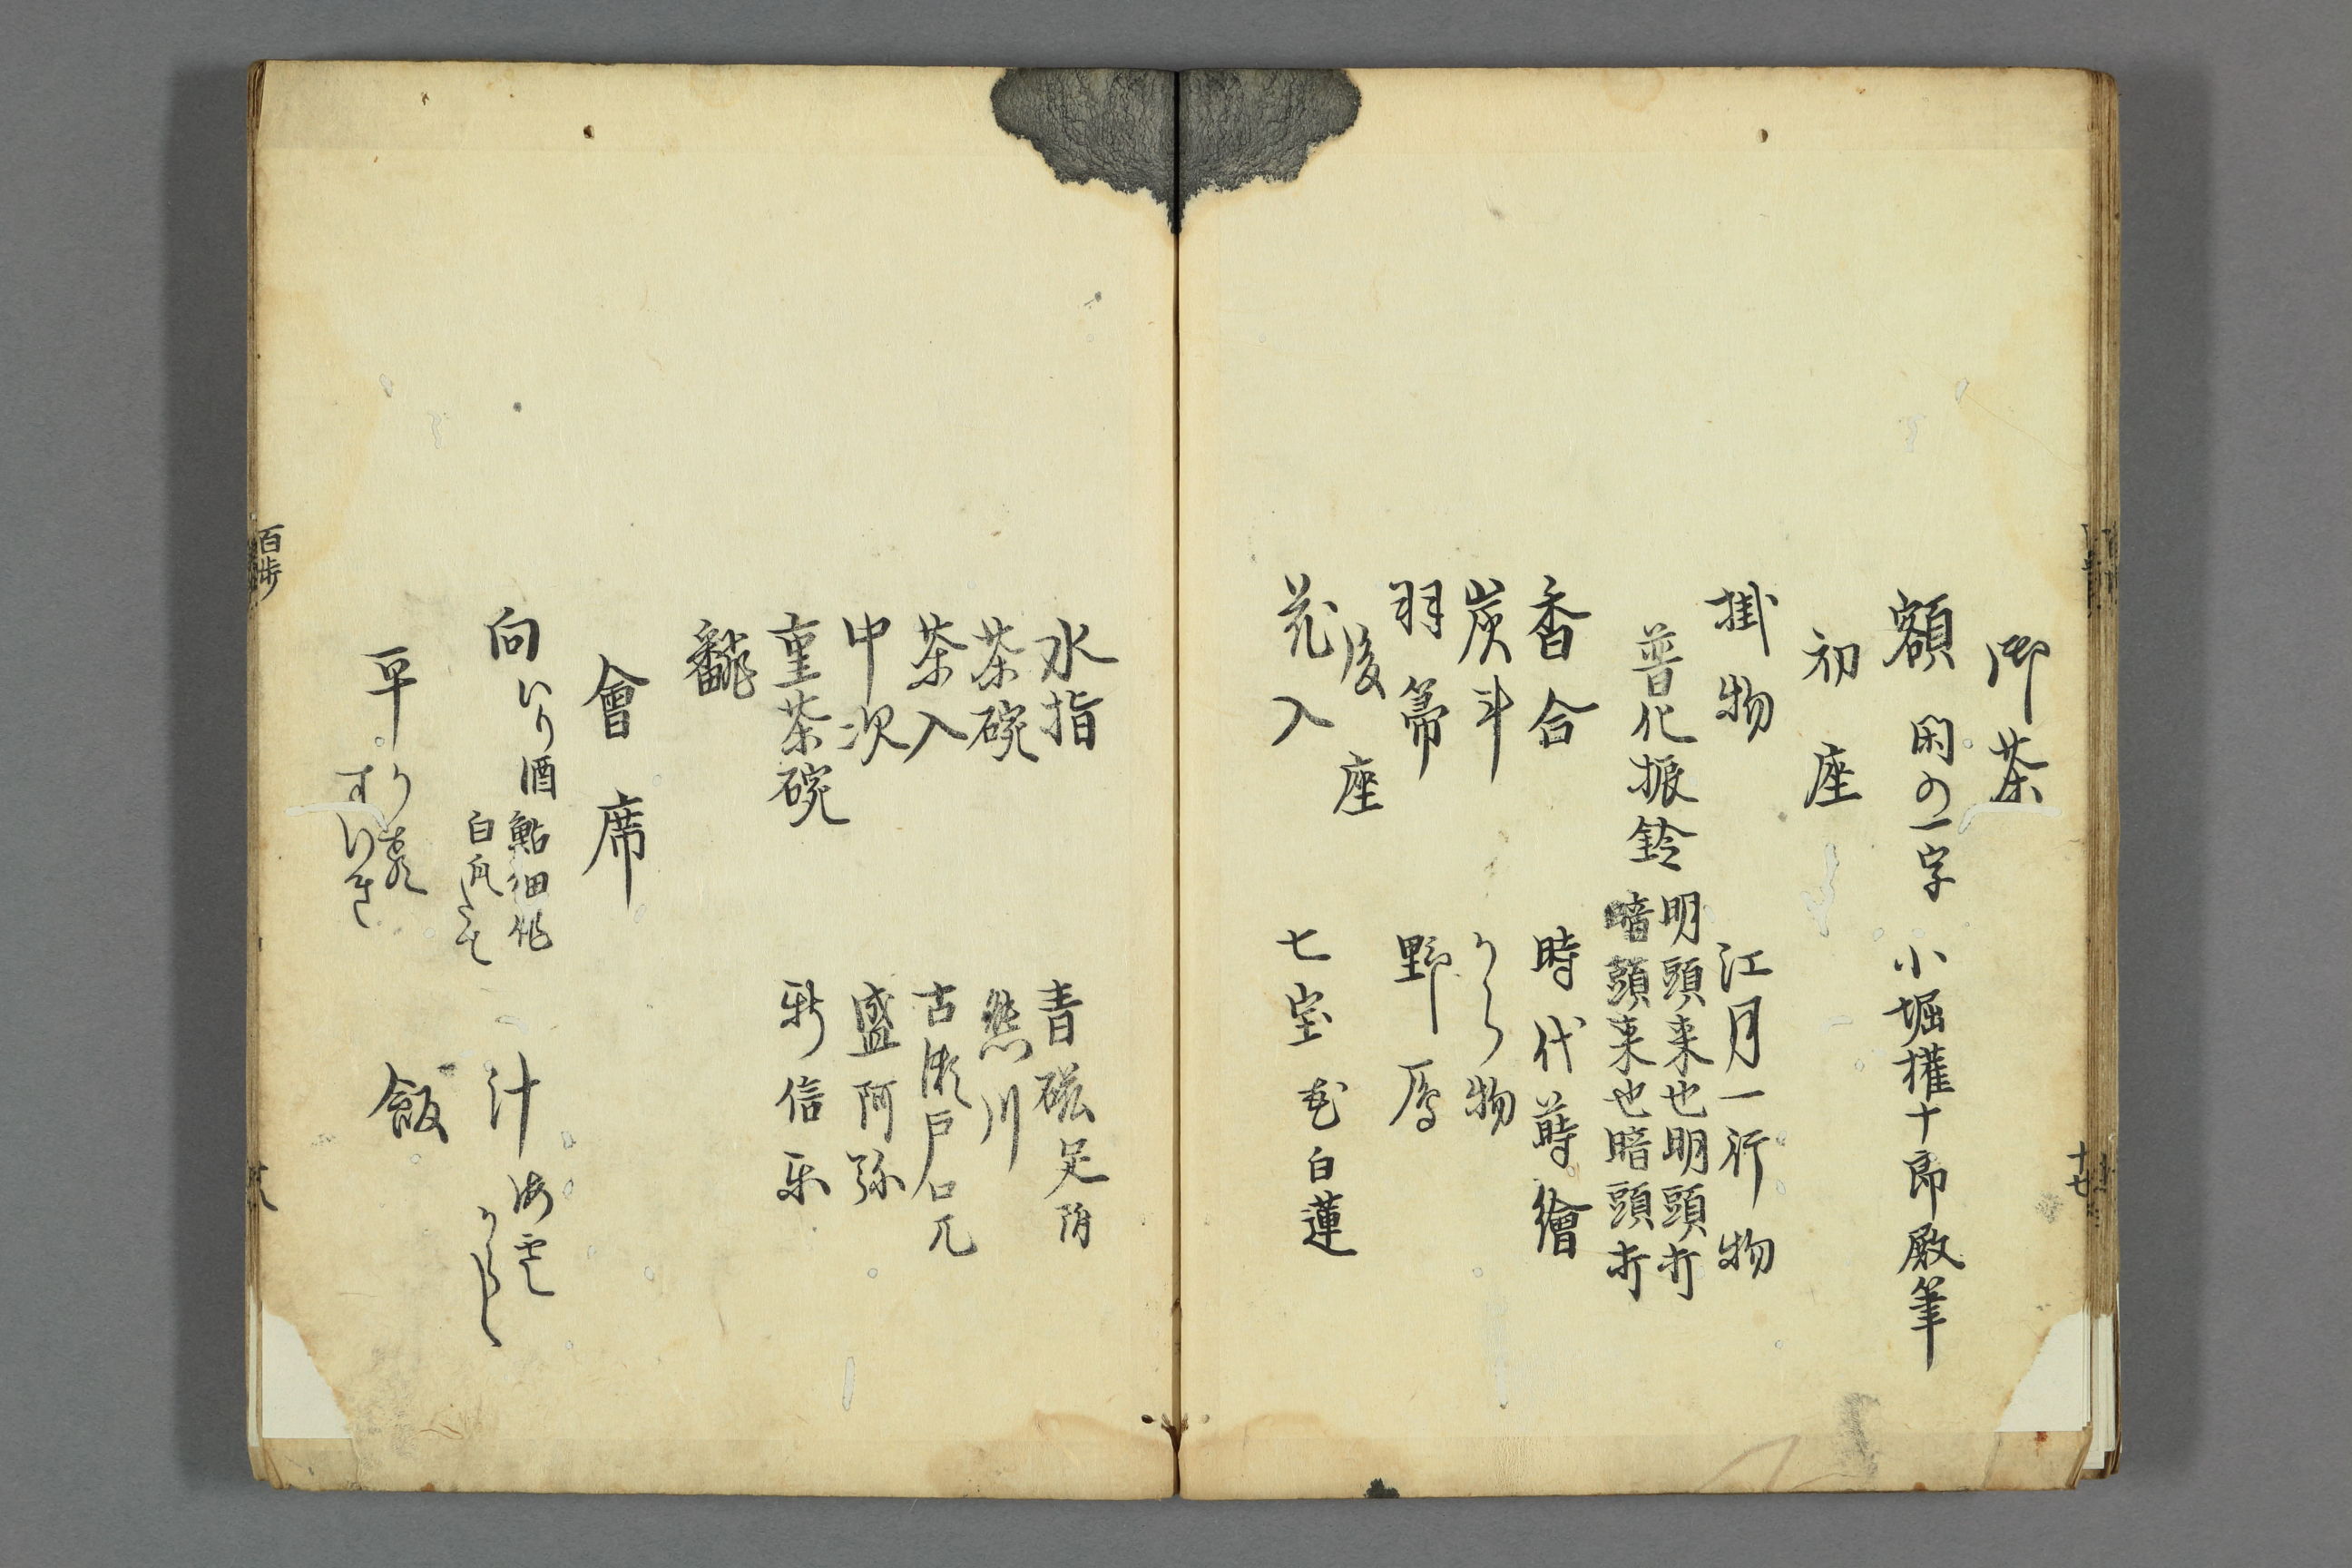 御茶
額 閑の一字 小堀権十郎殿筆
初座
掛物 江月一行物
普化振鈴 明頭来也明頭打
暗頭来也暗頭打
香合 時代蒔繪
炭斗 から物
羽箒 野雁
後座
花入 七宝 花白蓮
水指 青磁足附
茶碗 熊川
茶入 古瀬戸口兀
中次 盛阿弥
重茶碗 新信楽
飜
會席
向 いり酒 鮎細作
白瓜たて
汁
平
すいき
飯
百歩
十七